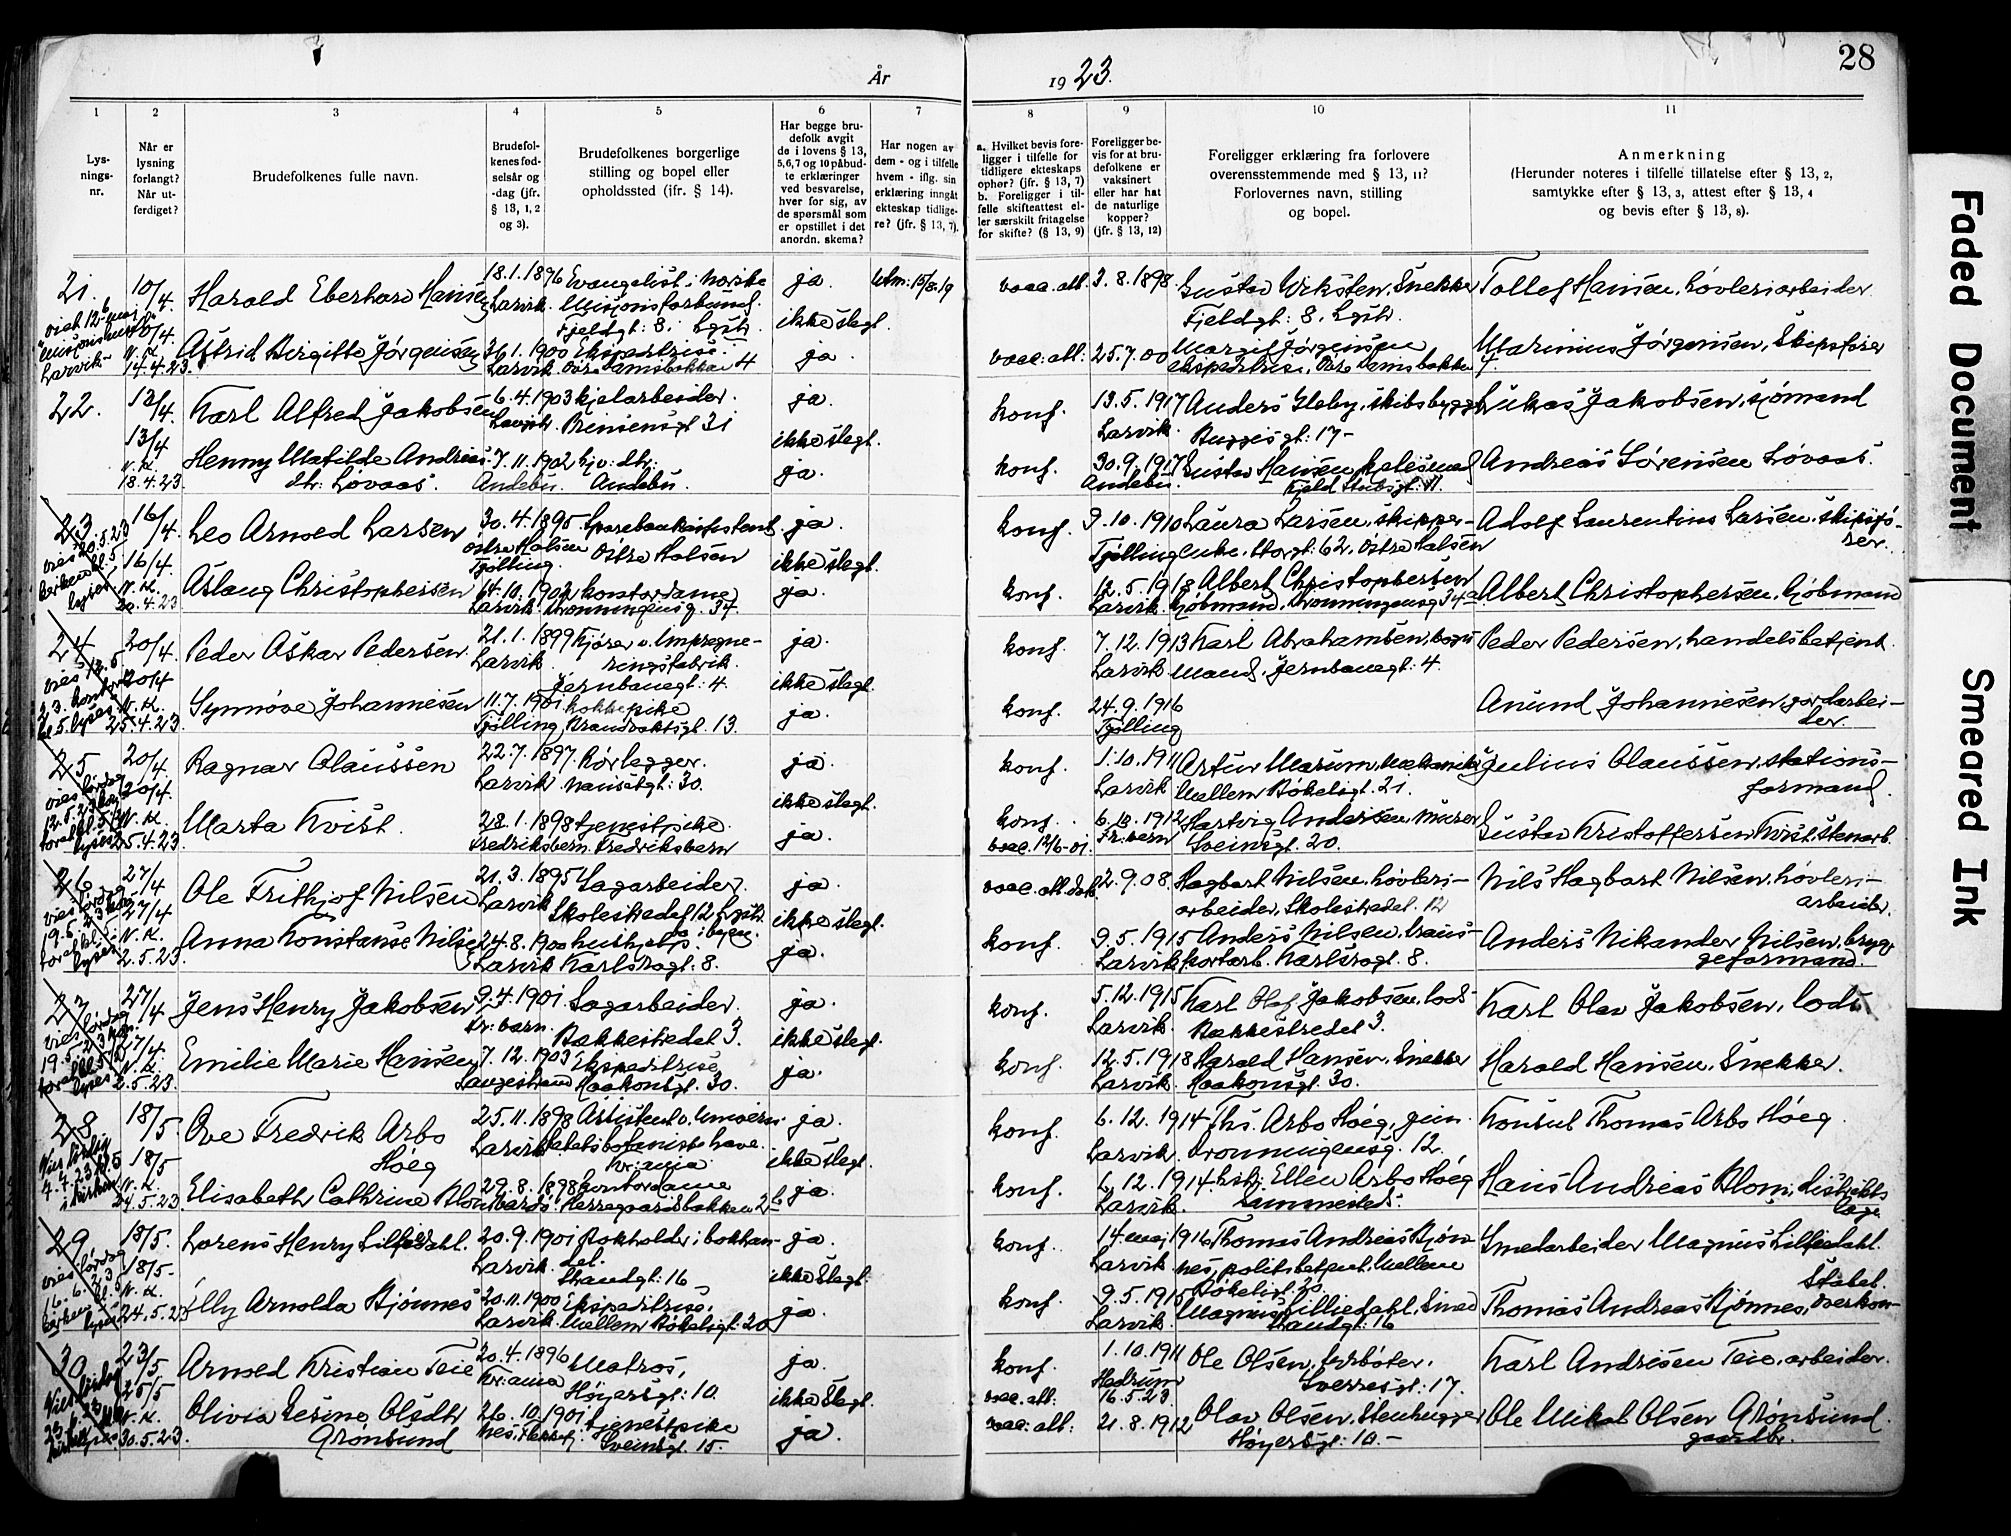 År 1923.
28
1
2
3
4
5
6
7
8
9
10
11
Lysningsnr.
Når er lysning forlangt? Når utferdiget?
Brudefolkenes fulle navn.
Brudefolkenes fødselsår og -dag (jfr. § 13, 1, 2 og 3).
Brudefolkenes borgerlige stilling og bopel eller opholdssted (ifr. § 14).
Har begge brudefolk avgit de i lovens § 13, 5,6,7 og 10 påbudte erklæringer ved besvarelse, hver for sig, av de spørsmål som er opstillet i det anordn. skema?
Har nogen av dem - og i tilfelle hvem - iflg. sin erklæring inngåt ekteskap tidligere? (jfr. § 13, 7).
a. Hvilket bevis foreligger i tilfelle for tidligere ekteskaps ophør? (jfr. § 13, 7) b. Foreligger i tilfelle skifteattest eller særskilt fritagelse for skifte? (§ 13, 9)
Foreligger bevis for at brudefolkene er vaksinert eller har hat de naturlige kopper? (jfr. § 13, 12)
Foreligger erklæring fra forlovere overensstemmende med § 13, 11? Forlovernes navn, stilling og bopel.
Anmerkning (Herunder noteres i tilfelle tillatelse efter § 13, 2, samtykke efter § 13, 3, attest efter § 13, 4 og bevis efter § 13, 8).
21. 10/4. Harald Eberhard Hansen 18.1.1896 Larvik. Evangelist i norske Misjonsforbund. Fjeldgt: 8. Lgstr. ja.
ikke slegt.
vacc. att. 3.8.1898. Gustav Wiksten, Snekker Fjeldgt: 8, Lgstr. Tollef Hansen, høvleriarbeider
10/4. 14.4.23. Astrid Birgitte Jørgensen 26.1.1900 Larvik. Ekspeditrise. ja
vacc: att: 25.7.00 Margit Jørgensen ekspeditrise, Marinius Jørgensen, Skipsfører
22. 13/4. Karl Alfred Jakobsen 6.4.1903 Prinsensgt 31 ja.
ikke slegt.
konf. 13.5.1917 Larvik. Anders Gleby, skibsbygger Bugges gt: 17- Lukas Jakobsen, sjømand
13/4 18.4.23. Henny Matilde Andreasdtr: Løvaas. 7.11.1902 Andebu. Andebu. ja.
konf. 30.9.1917 Andebu. Gustav Hansen, Andreas Sørensen Løvaas.
23 16/4. Leo Arnold Larsen 30.4.1895 Østre Halsen Tjølling. Østre Halsen ja.
ikke slegt.
konf. 9.10.1910 Tjølling Laura Larsen, skipperenke. Storgt: 62, Østre Halsen Adolf Laurentius Larsen, skipsfører.
16/4. 20.4.23 Aslaug Christophersen 14.10.1902 Larvik. Kontordame Dronningensg. 34. ja.
konf. 12.5.1918 Larvik. Albert Christophersen Kjøbmand, Dronningensg 34 Albert Christophersen, Kjøbmand
24 20/4. Peder Askar Pedersen. 21.1.1899 Larvik. Kjører v. Impregneringsfabrik. Jernbanegt: 4 ja.
ikke slegt.
konf. 7.12.1913 Larvik Karl Abrahamsen, Jernbanegt: 4. Peder Pedersen, handelsbetjent.
20/4 25.4.23. Synnøve Johannesen 11.7.1901 Tjølling. Kokkepike Brandvaktsgt. 13. ja.
konf. 24.9.1916 Tjølling Anund Johannesen, jordarbeider.
25 20/4. Ragnar Olaussen 22.7.1897. Larvik. Rørlegger. Nansetgt: 30. ja.
ikke slegt.
konf. 1.10.1911 Larvik Artur Marum, Mekaniker Mellem Bøkeligt. 21. Julius Olaussen, stationsformand.
20/4. 25.4.23. Marta Kvist. 28.1.1898 Fredriksvern. Tjenestpike. Fredriksvern ja.
konf. vacc. 12/6-01. 1912 Fr: vern Hartvig Andersen, Murer Sveinsgt. 20. Gustav Kristoffersen Kvist, Stenarb.
26 27/4 Ole Frithjof Nilsen 21.3.1895 Larvik Sagarbeider. Skolestredet 12 Lgstr. ja.
ikke slegt.
vacc. att. 2.9.08. Hagbart Nilsen, høvleriarbeider, Skolestredet 12 Nils Hagbart Nilsen, høvleriarbeider.
27/4. 2.5.23. Anna Konstanse Nilsen 24.8.1900 Larvik. Karlsrogt: 8. ja.
konf. 9.5.1915 Larvik Anders Nilsen, transportarb. Karlsrogt. 8. Anders Nikander Nilsen, bryggeformand.
27 27/4 Jens Henry Jakobsen 9.4.1901 Fr: vern. Sagarbeider. Bakkestredet 3. ja.
ikke slegt.
konf. 5.12.1915 Larvik. Karl Olaf Jakobsen, lods Bakkestredet 3. Karl Olav Jakobsen, lods
27/4. 2.5.23. Emilie Marie Hansen 7.12.1903 Langestrand Ekspeditrise Haakonsgt. 30. ja.
konf. 12.5.1918 Larvik. Harald Hansen, Snekker Haakonsgt. 30. Harald Hansen, Snekker.
28 18/5. Ove Fredrik Arbo Høeg 25.11.1898 Larvik. Assistent v. Universitetets botaniske have. Kr:ania ja.
ikke slegt.
konf. 6.12.1914 Larvik. Ths. Arbo Høeg, jun. Dronningensg. 12. Konsul Thomas Arbo Høeg.
18/5 24.5.23. Elisabeth Cathrine Blom 29.8.1898 Kontordame Herregaardsbakken 2 ja.
konf. 6.12.1914. Larvik. Ellen Arbo Høeg Sammesteds. Hans Andreas Blom, distriktslæge
29 18/5. Lorens Henry Lilliedahl. 20.9.1901 Larvik. Bokholder i bokhandel. Strandgt: 16 ja.
ikke Slegt.
konf. 14 maj 1916 Larvik Thomas Andreas Bjønnes, politibetjent, Mellem Bøkeligt 20 Smedarbeider Magnus Lilliedahl.
18/5- 24.5.23 Elly Arnolda Bjønnes 20.11.1900 Larvik. Ekspeditrise. Mellem Bøkeligt: 20 ja.
konf. 9.5.1915 Larvik. Magnus Lilliedahl, Smed Strandgt: 16 Thomas Andreas Bjønnes, overkonstabel.
30 23/5 Arnold Kristian Teie 20.4.1896 Kr:ania Matros, Høyersgt: 10. ja.
ikke Slegt.
konf. vacc. att: 1.10.1911 Hedrum 16.5.23 Ole Olsen, fyrbøter. Sverresgt: 17. Karl Andrisen Teie, arbeider.
30.5.23. Olivia Lesine Olsdtr Grønsund 26.10.1901 Tjenestpike Sveinsgt. 15. ja.
vacc: att: 21.8.1912 Olav Olsen, Stenhugger Høyersgt: 10.- Ole Mikal Olsen Grønsund gaardbr.
Faded Document
Smeared Ink